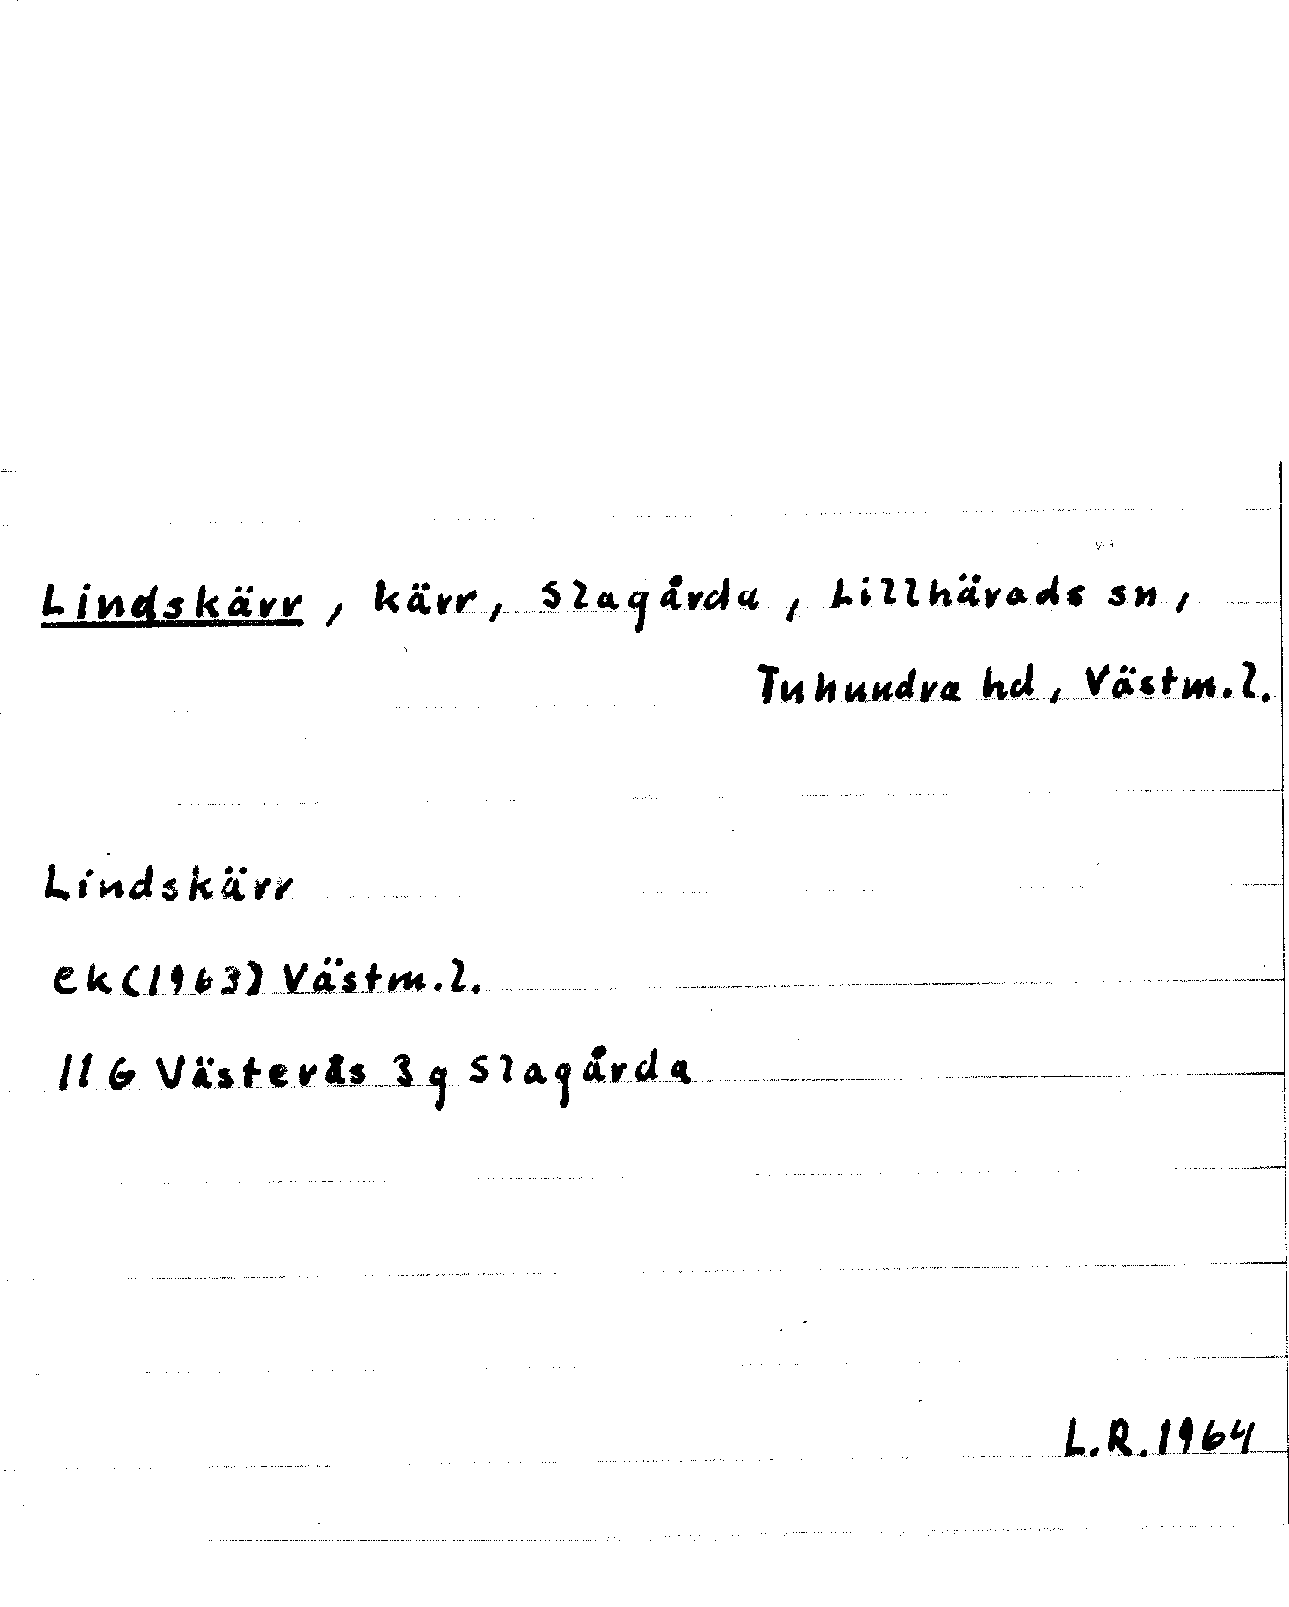 Lindskärr, kärr, Slagårda, Lillhärads sn,
Tuhundra hd, Västm.l.
Lindskärr
ek(1963) Västm.l.
11G Västerås 3g Slagårda
L.R.1964